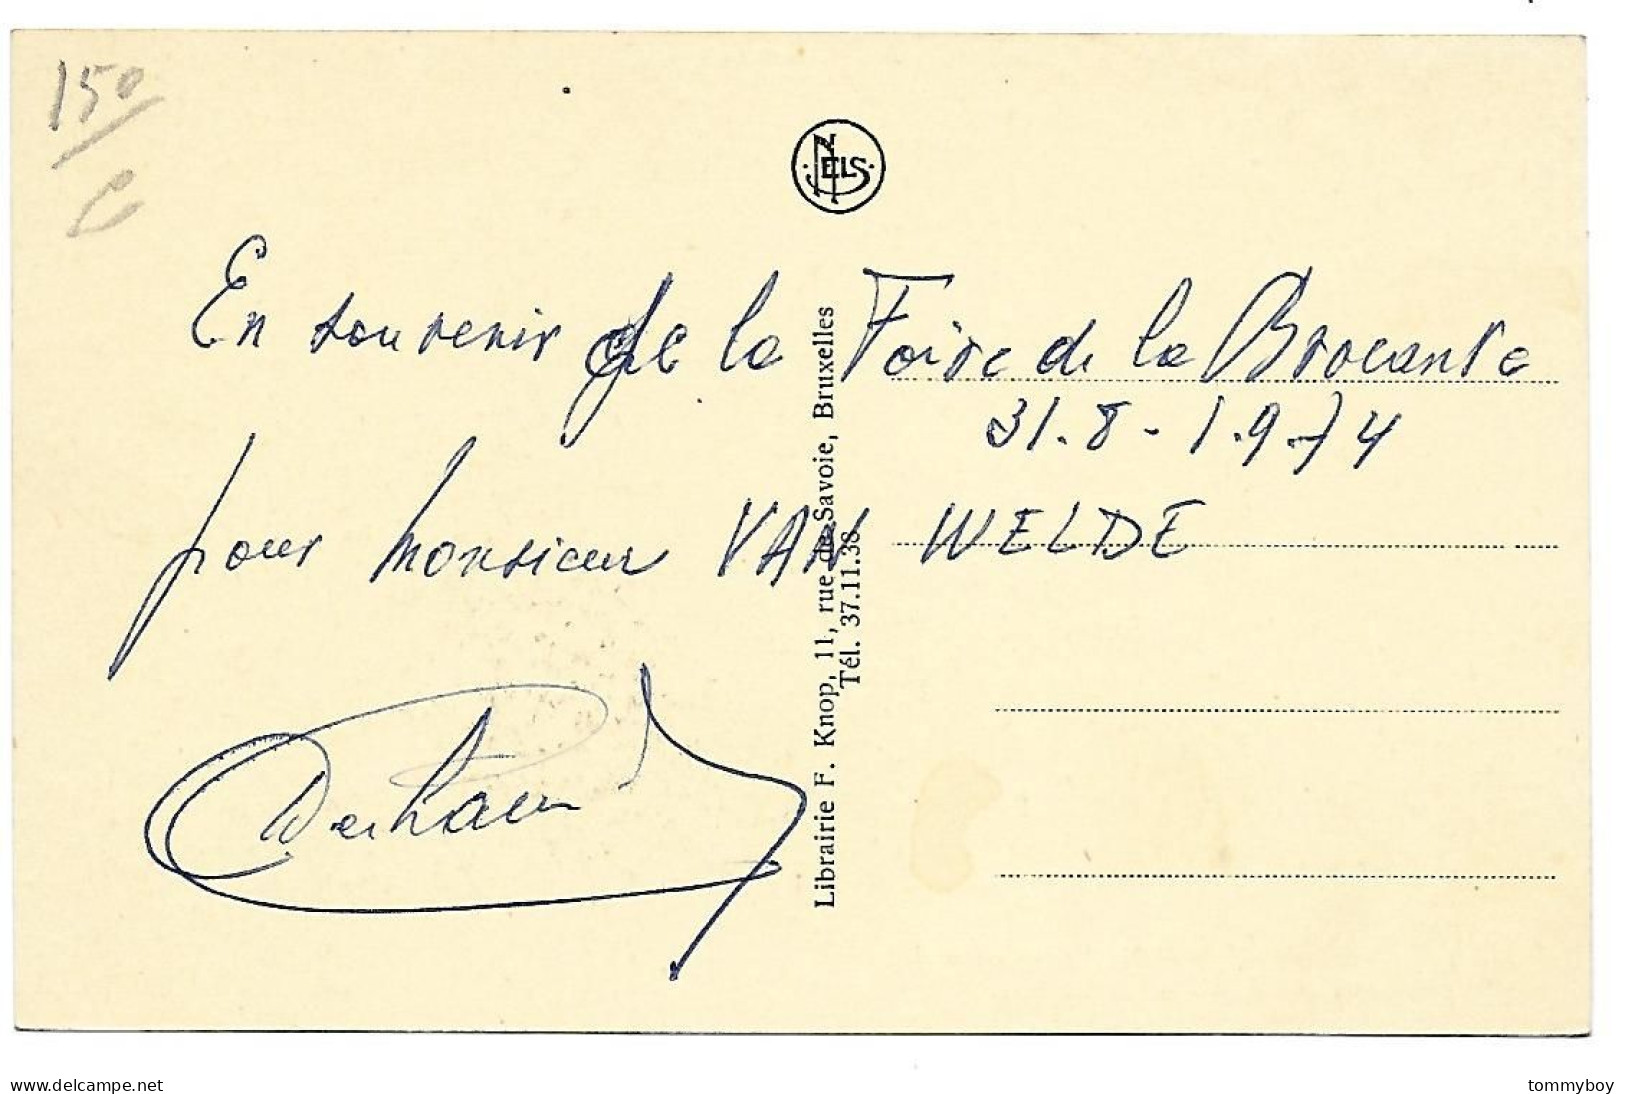 150
C
NELS
En souvenir de la Foire de la Brocante
31.8-1.9.74
pour Monsieur VAN WELDE
Librairie F. Knop, 11, rue de Savoie, Bruxelles
Tél. 37.11.38
www.delcampe.net
tommyboy